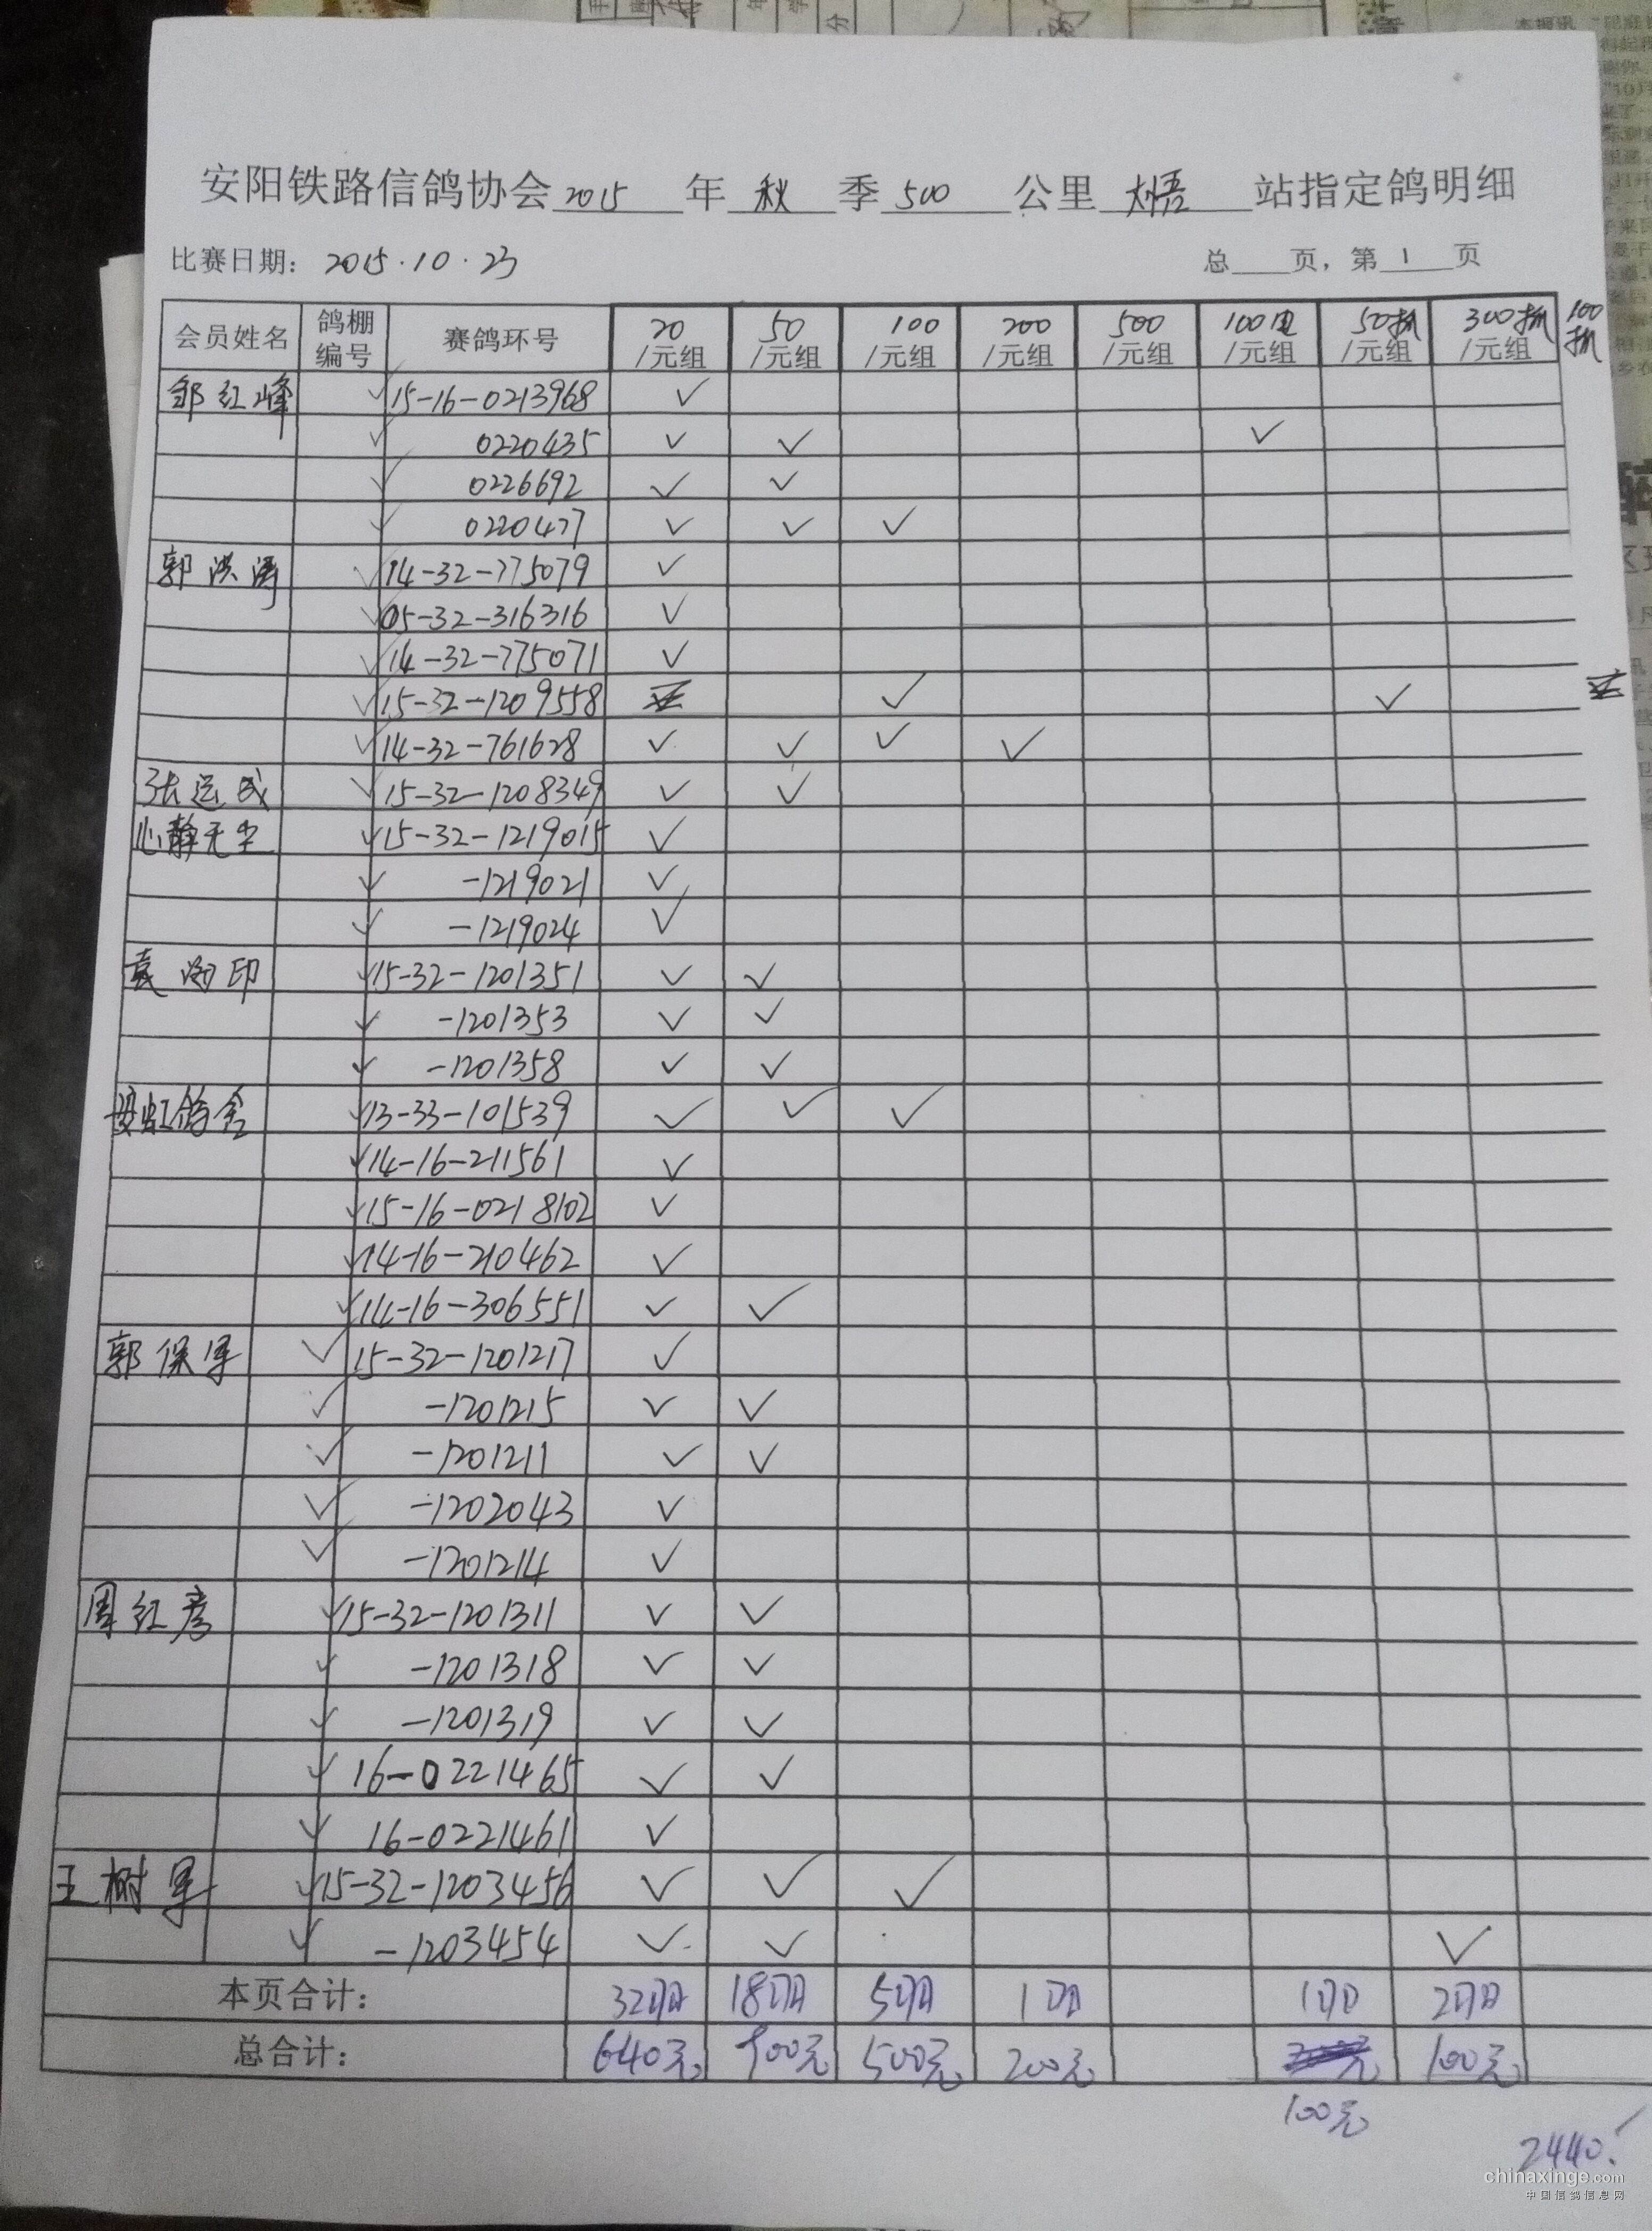 安阳铁路信鸽协会 2015 年 秋 季 500 公里 大悟 站指定鸽明细
比赛日期： 2015.10.23 总 页，第 1 页
会员姓名 鸽棚编号 赛鸽环号 20/元组 50/元组 100/元组 200/元组 500/元组 100/元组 50抓/元组 300抓/元组 100抓
邹红峰 ✓ 15-16-0213968 ✓
✓ 0220435 ✓ ✓ ✓
✓ 0226692 ✓ ✓
✓ 0220477 ✓ ✓ ✓
郭洪涛 ✓ 14-32-775079 ✓
✓ 05-32-316316 ✓
✓ 14-32-775071 ✓
✓ 15-32-1209558 ✓ ✓
✓ 14-32-761628 ✓ ✓ ✓ ✓
张运成 ✓ 15-32-1208349 ✓ ✓
心静无尘 ✓ 15-32-1219015 ✓
✓ -1219021 ✓
✓ -1219024 ✓
袁 印 ✓ 15-32-1201351 ✓ ✓
✓ -1201353 ✓ ✓
✓ -1201358 ✓ ✓
虹鸽舍 ✓ 13-33-101539 ✓ ✓ ✓
✓ 14-16-211561 ✓
✓ 15-16-0218102 ✓
✓ 14-16-210462 ✓
✓ 14-16-306551 ✓ ✓
郭保军 ✓ 15-32-1201217 ✓
✓ -1201215 ✓ ✓
✓ -1201211 ✓ ✓
✓ -1202043 ✓
✓ -1201214 ✓
周红彦 ✓ 15-32-1201311 ✓ ✓
✓ -1201318 ✓ ✓
✓ -1201319 ✓ ✓
✓ 16-0221465 ✓ ✓
✓ 16-0221461 ✓
王树军 ✓ 15-32-1203456 ✓ ✓ ✓
✓ -1203454 ✓ ✓ ✓
本页合计： 32羽 18羽 5羽 1羽 1羽 2羽
总合计： 640元 900元 500元 200元 100元
100元
2440.
chinaxinge.com
中国信鸽信息网